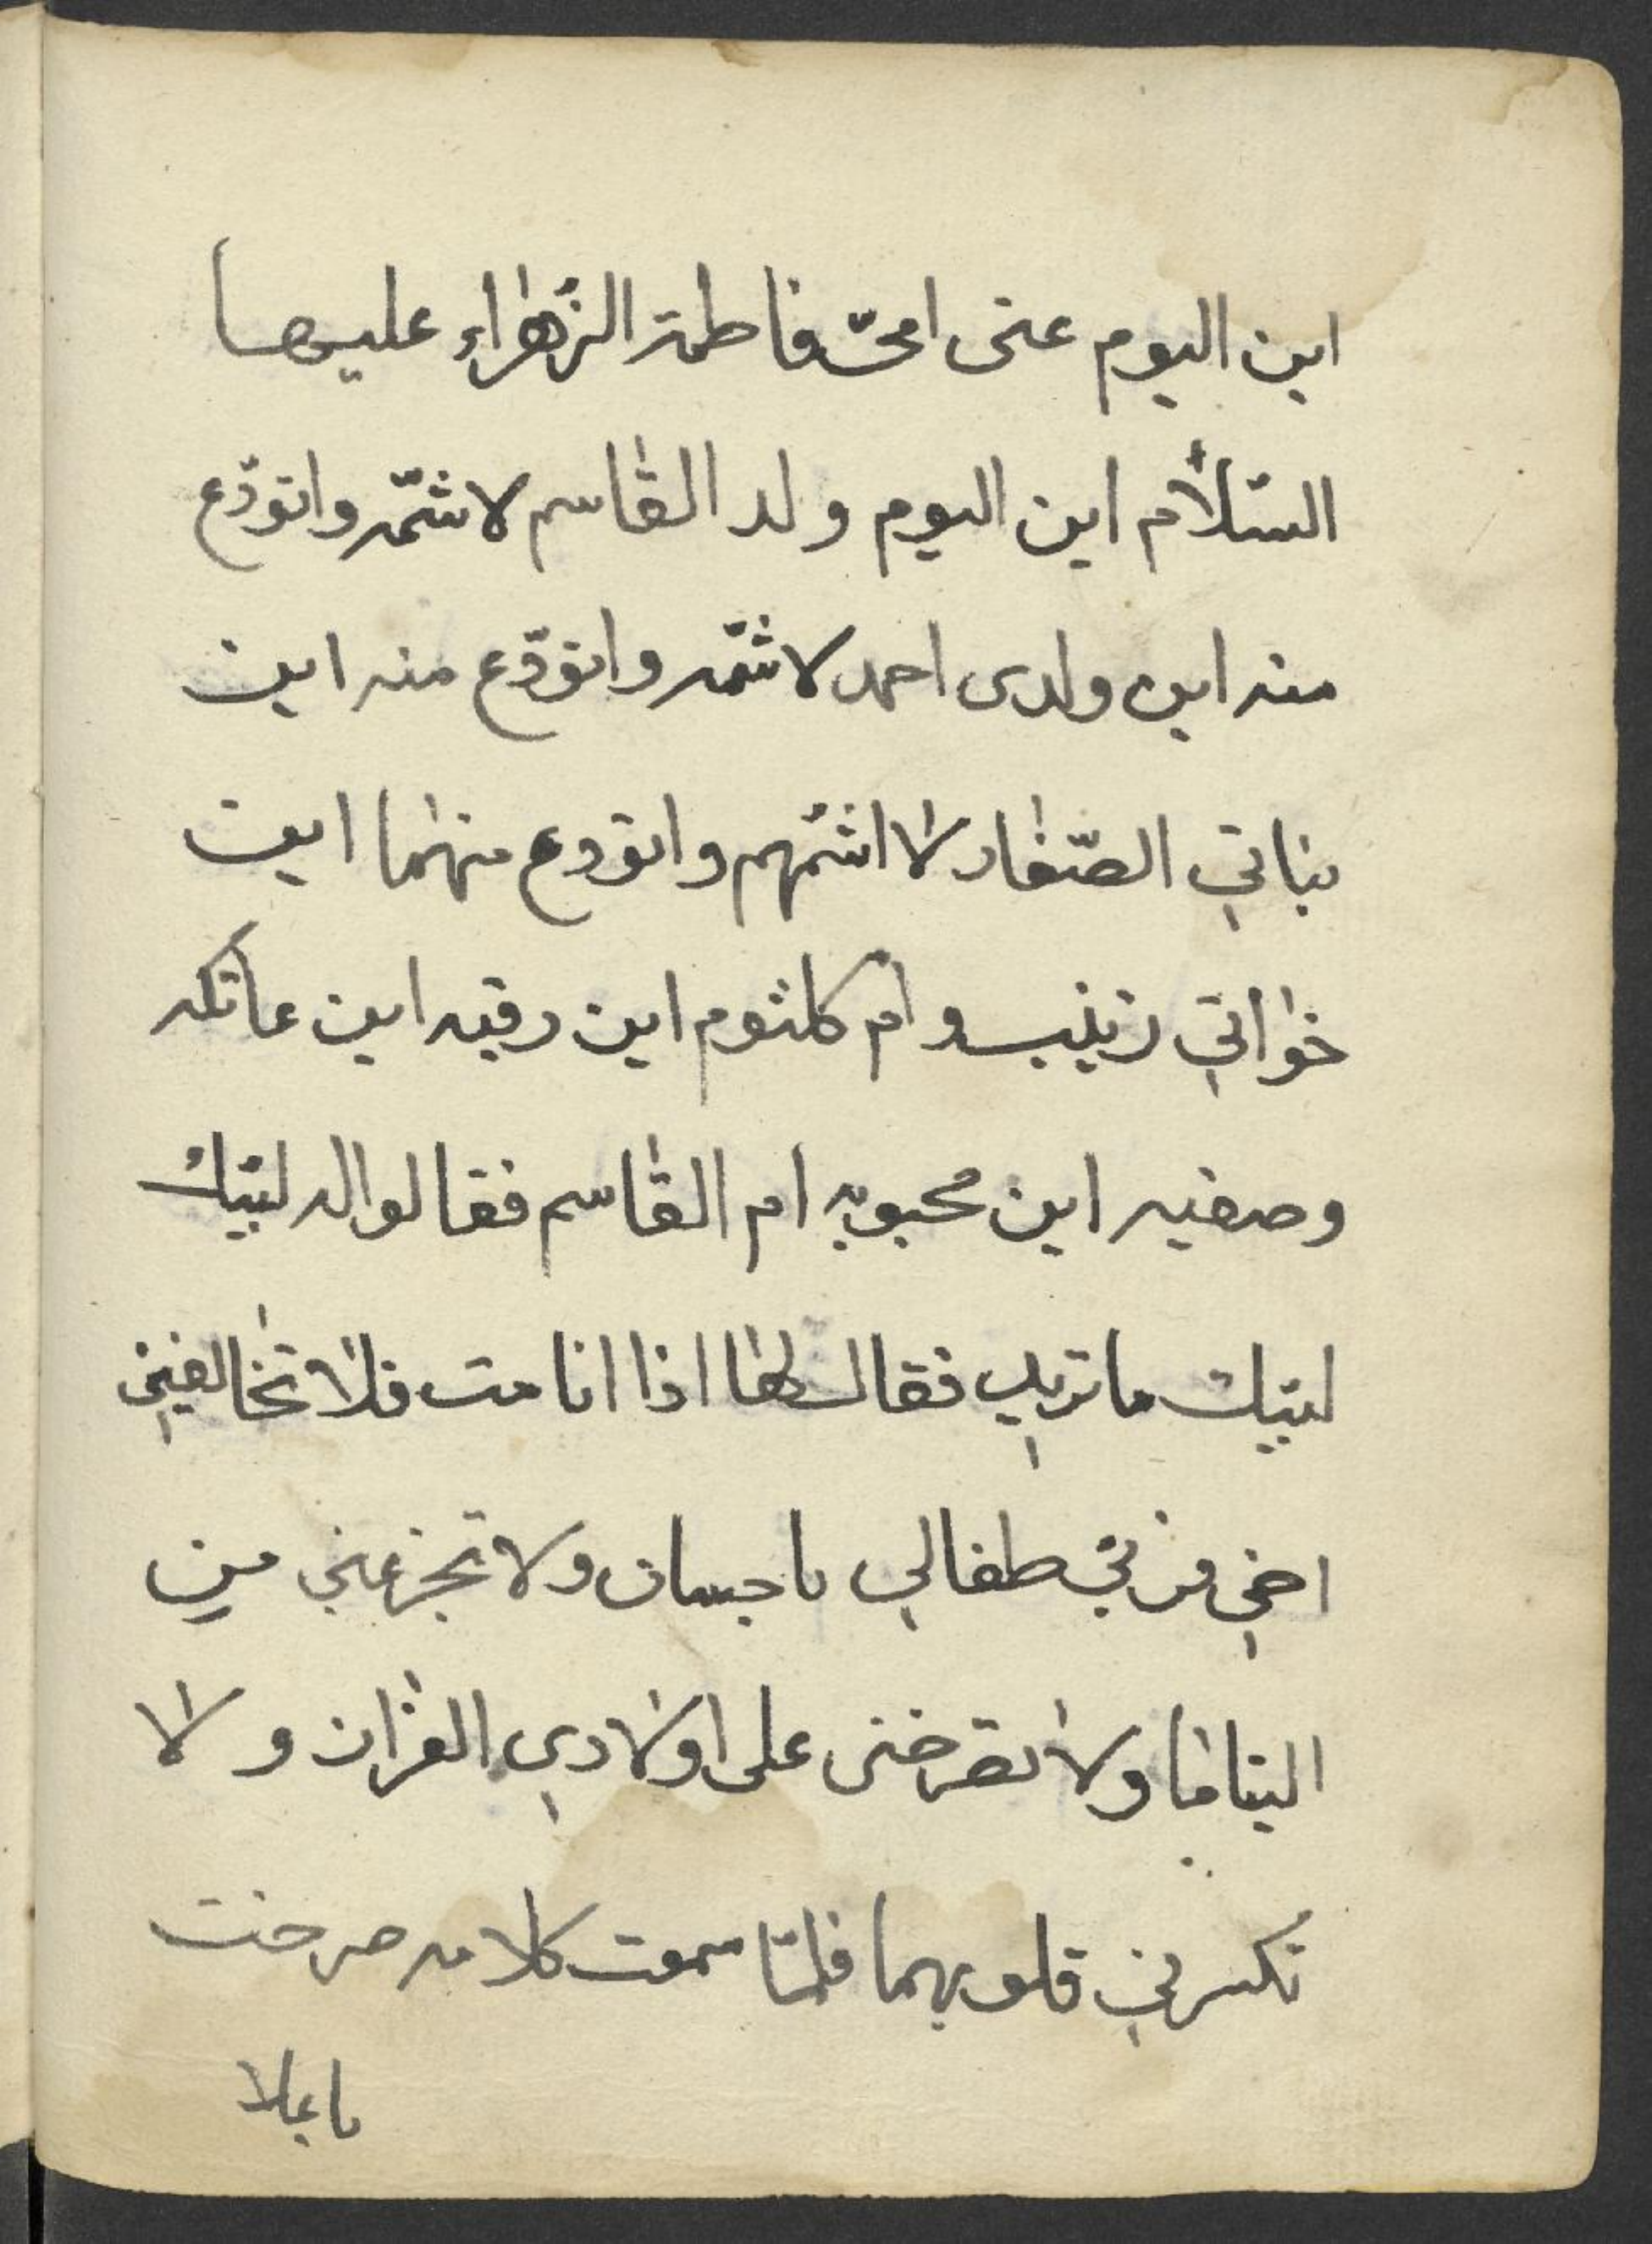 اين اليوم عنى امىّ فاطمة الزّهراء عليها
السّلام اين اليوم ولد القاسم لاشمّه واتودّع
منه اين ولدى احمد لاشمّه واتودّع منه اين
بناتي الصّغار لا اشمّهم واتودع منهما اين
خواتي زينب وام كلثوم اين رقيه اين عاتكه
وصفيه اين محبوبه ام القاسم فقالوا له لبّيك
لبّيك ما تريد فقال لها اذا انا مت فلا تخالفيني
اخي طفالي باحسان ولا تجزعني من
اليتاما ولا تعرضنى على اولادي القران ولا
تكسرني قلوبهما فلمّا سمعت كلامه صرخت
باعلا